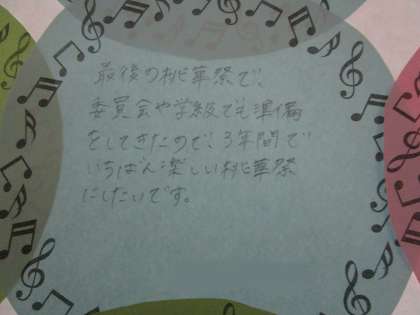 最後の桃華祭で、
委員会や学級でも準備
をしてきたので、3年間で
いちばん楽しい桃華祭
にしたいです。